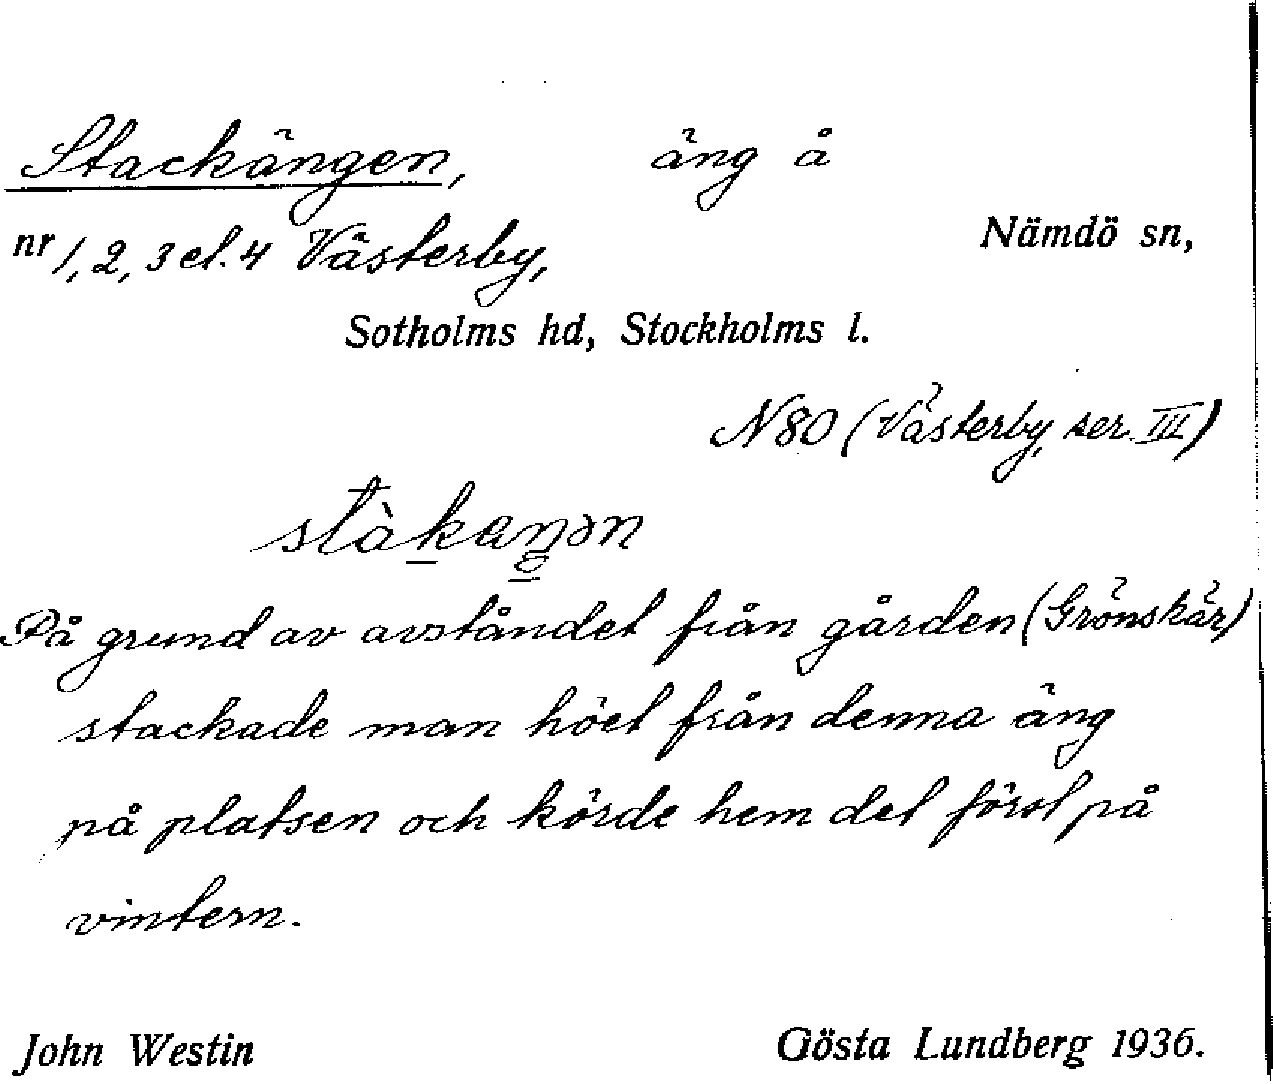 Stackängen, äng å
nr 1, 2, 3 el. 4 Västerby, Nämdö sn,
Sotholms hd, Stockholms l.
N 80 (Västerby, ser. III)
På grund av avståndet från gården (Grönskär)
stackade man höet från denna äng
på platsen och körde hem det först på
vintern.
John Westin Gösta Lundberg 1936.